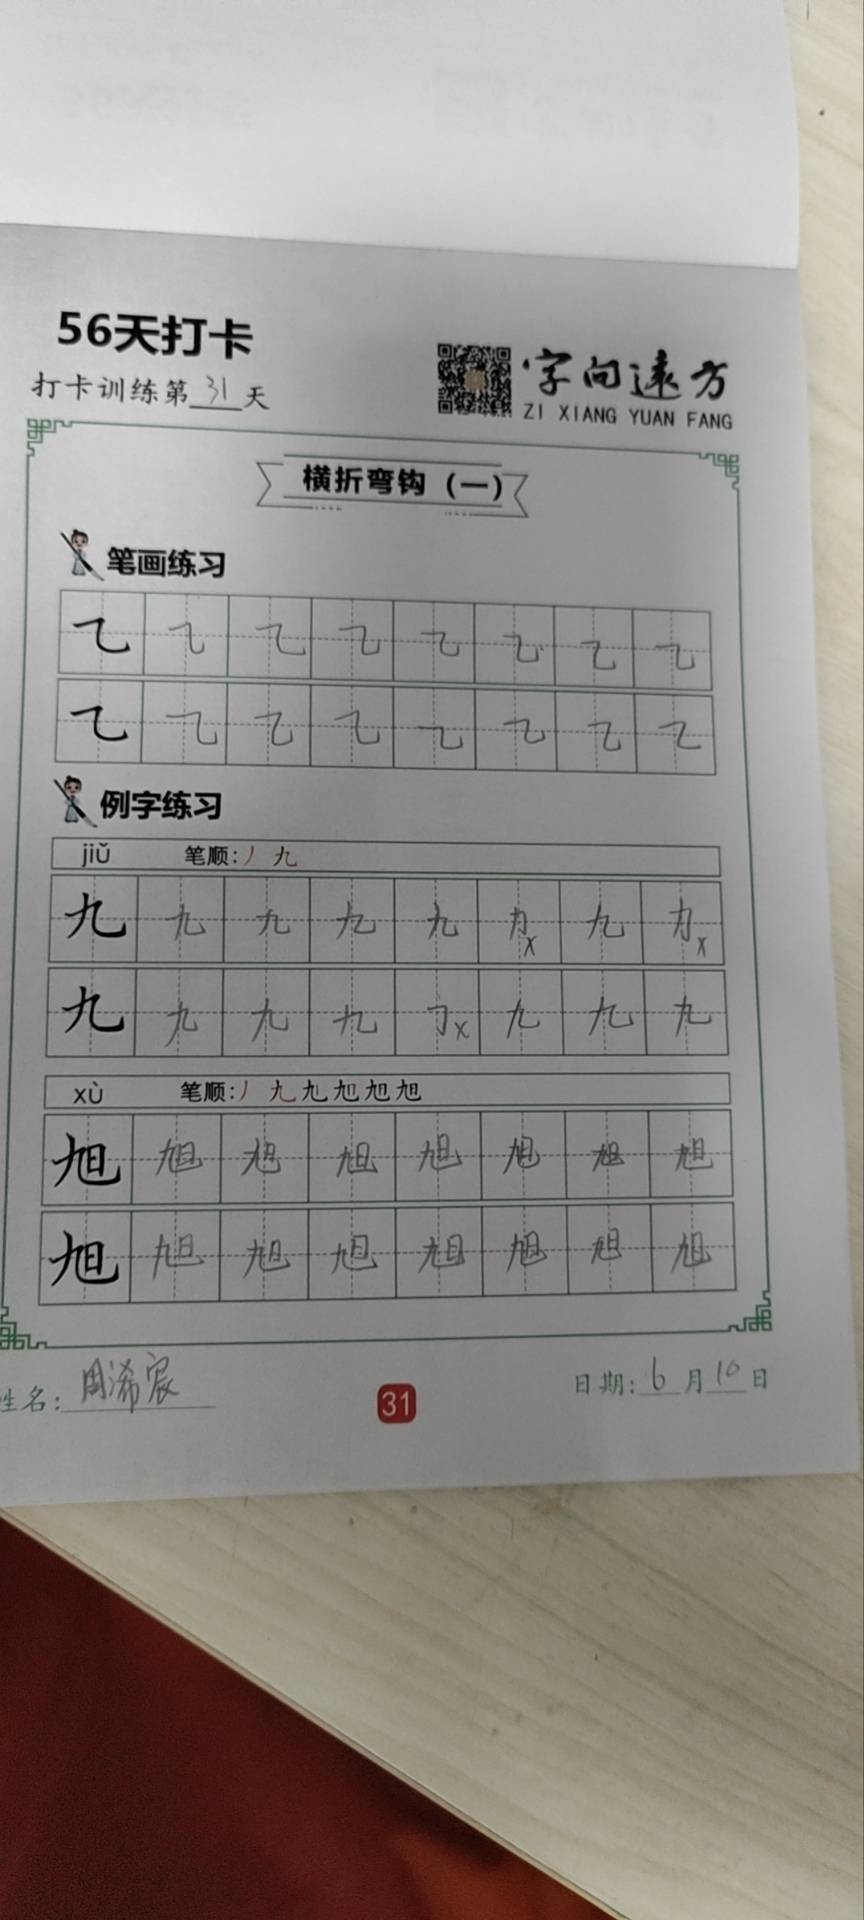 56天打卡
打卡训练第31天
字向遠方
ZI XIANG YUAN FANG
横折弯钩（一）
笔画练习
乙 乙 乙 乙 乙 乙 乙 乙
乙 乙 乙 乙 乙 乙 乙 乙
例字练习
jiǔ 笔顺:丿 九
九 九 九 九 九 力x 九 力x
九 九 九 九 x 九 九 九
xù 笔顺:丿 九 九 旭 旭 旭
旭 旭 旭 旭 旭 旭 旭 旭
旭 旭 旭 旭 旭 旭 旭 旭
姓名: 周浠宸
31
日期: 6月10日